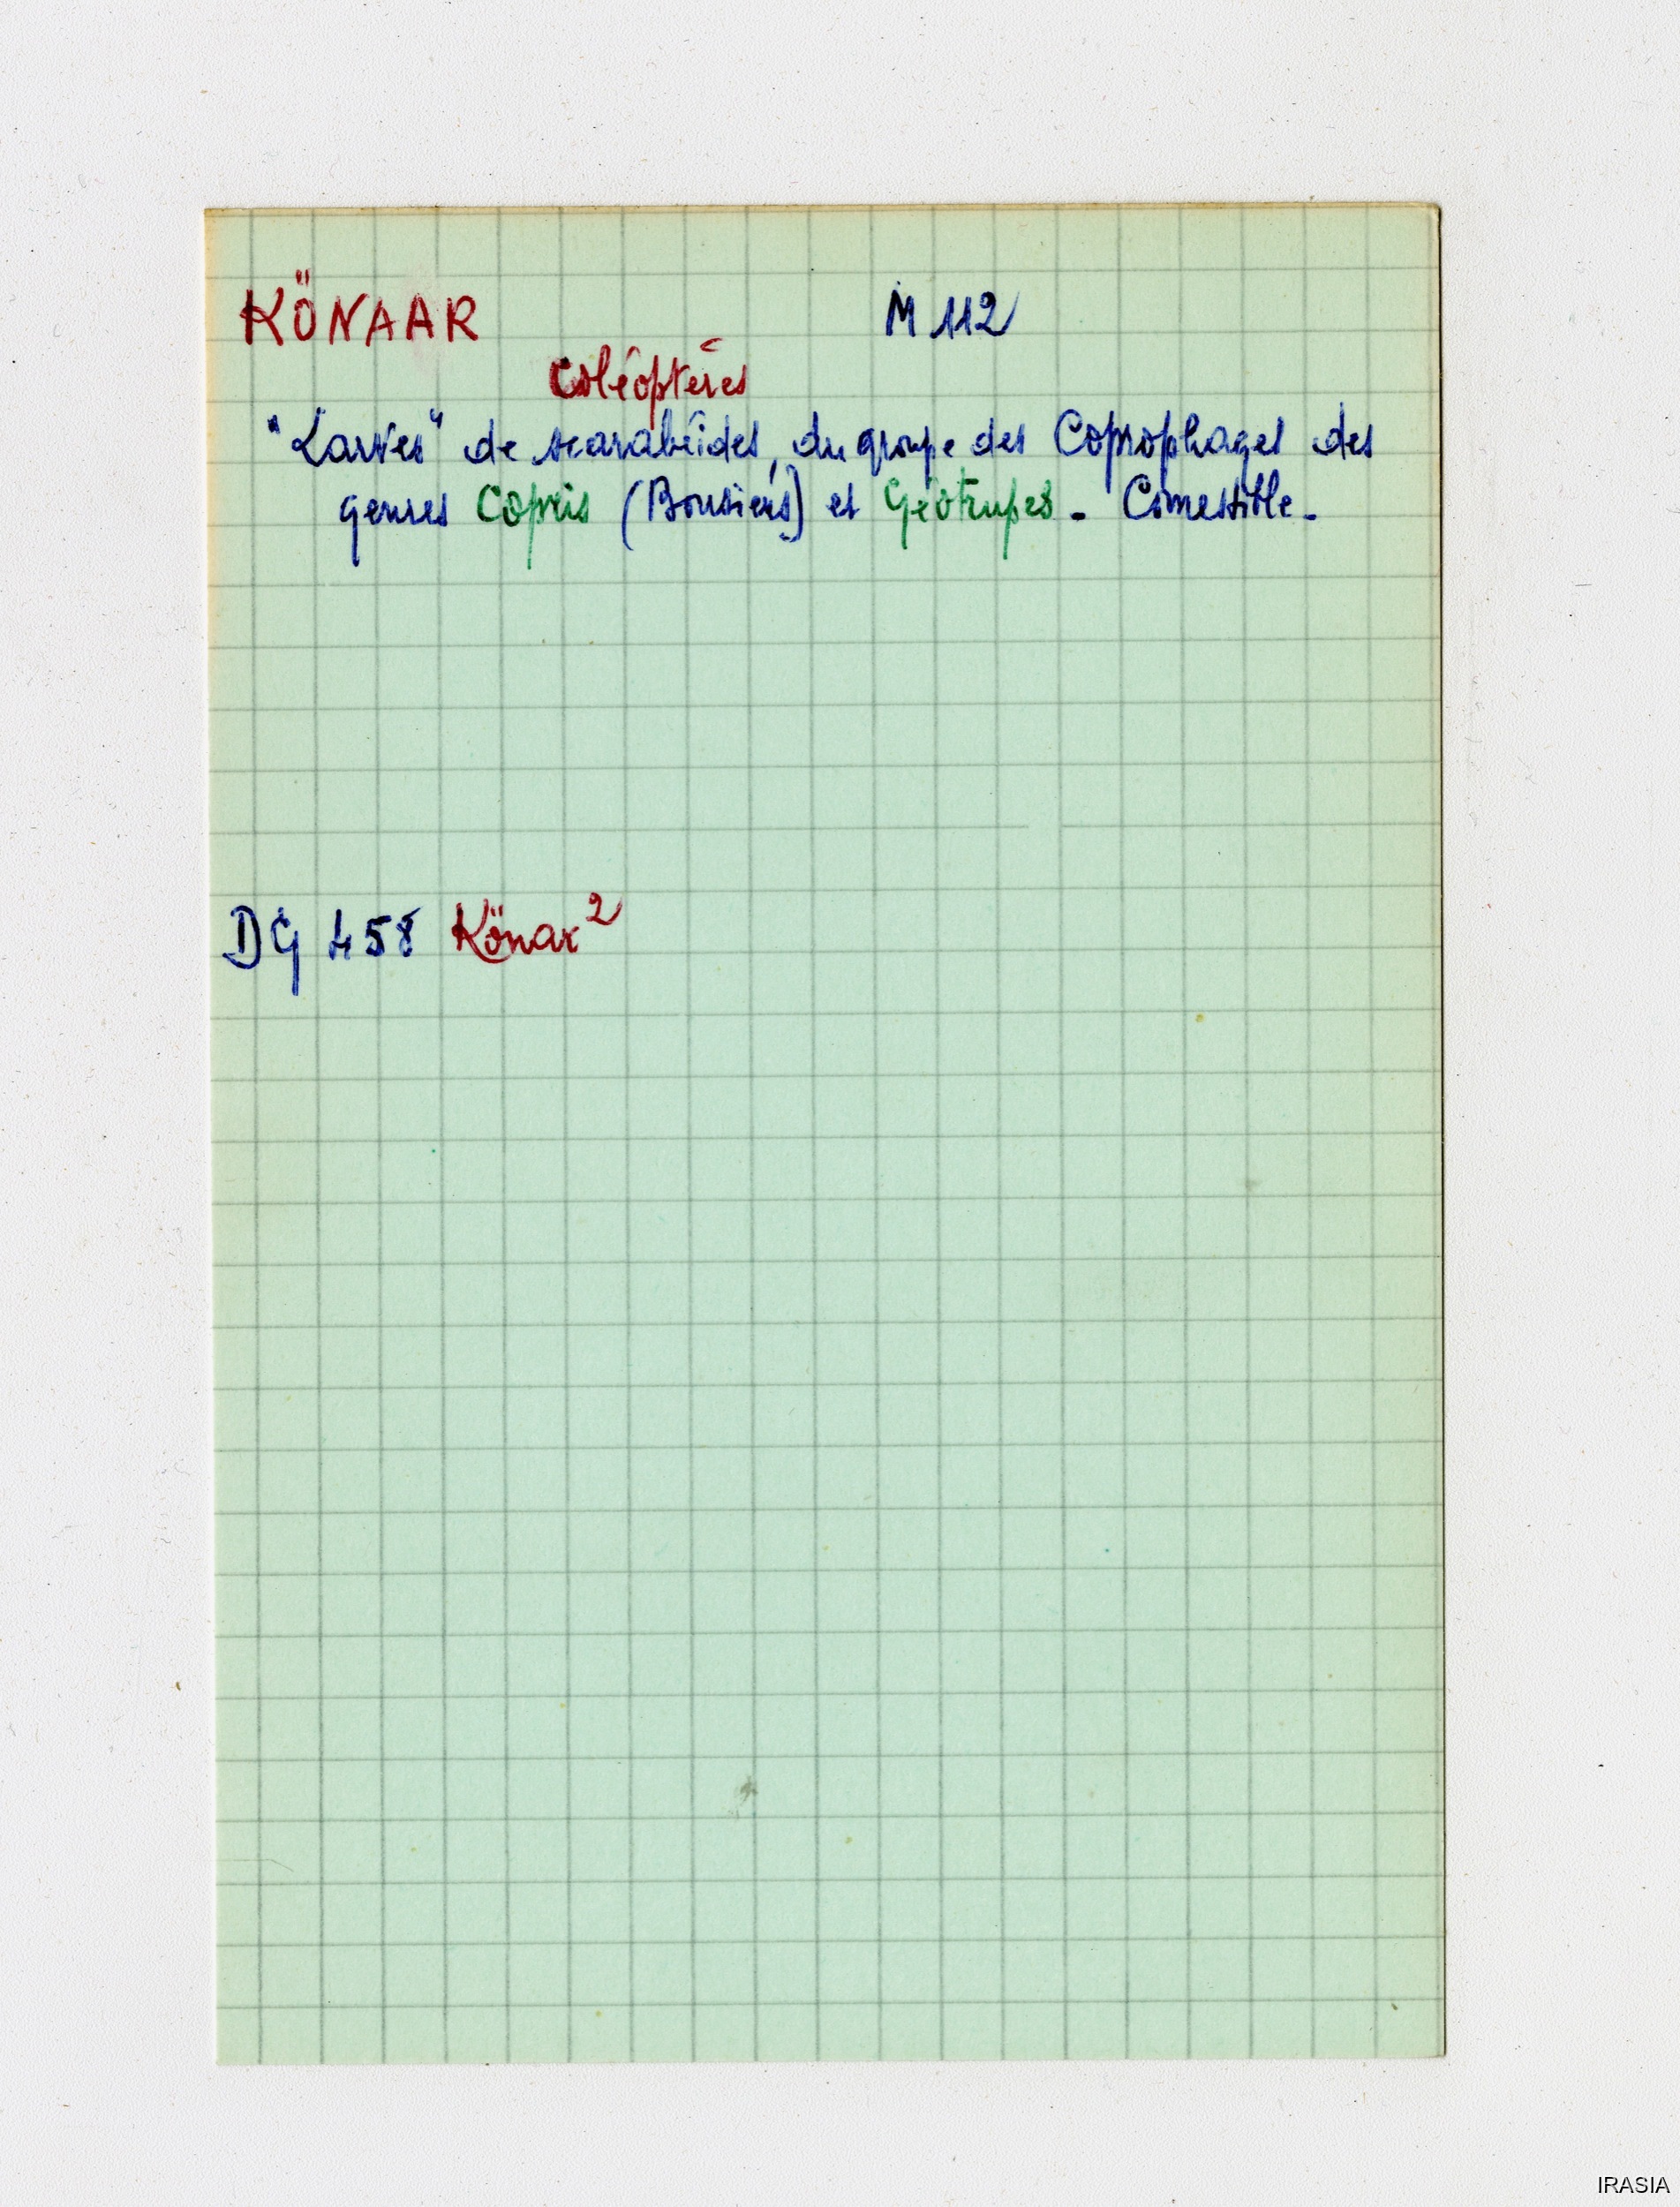 KÖNAAR M 112
Coléoptères
"Larves" de scarabéides, du groupe des Coprophages des
genres Copris (Bousiers) et Géotrupes - Comestible -
DG 458 Könar²
IRASIA